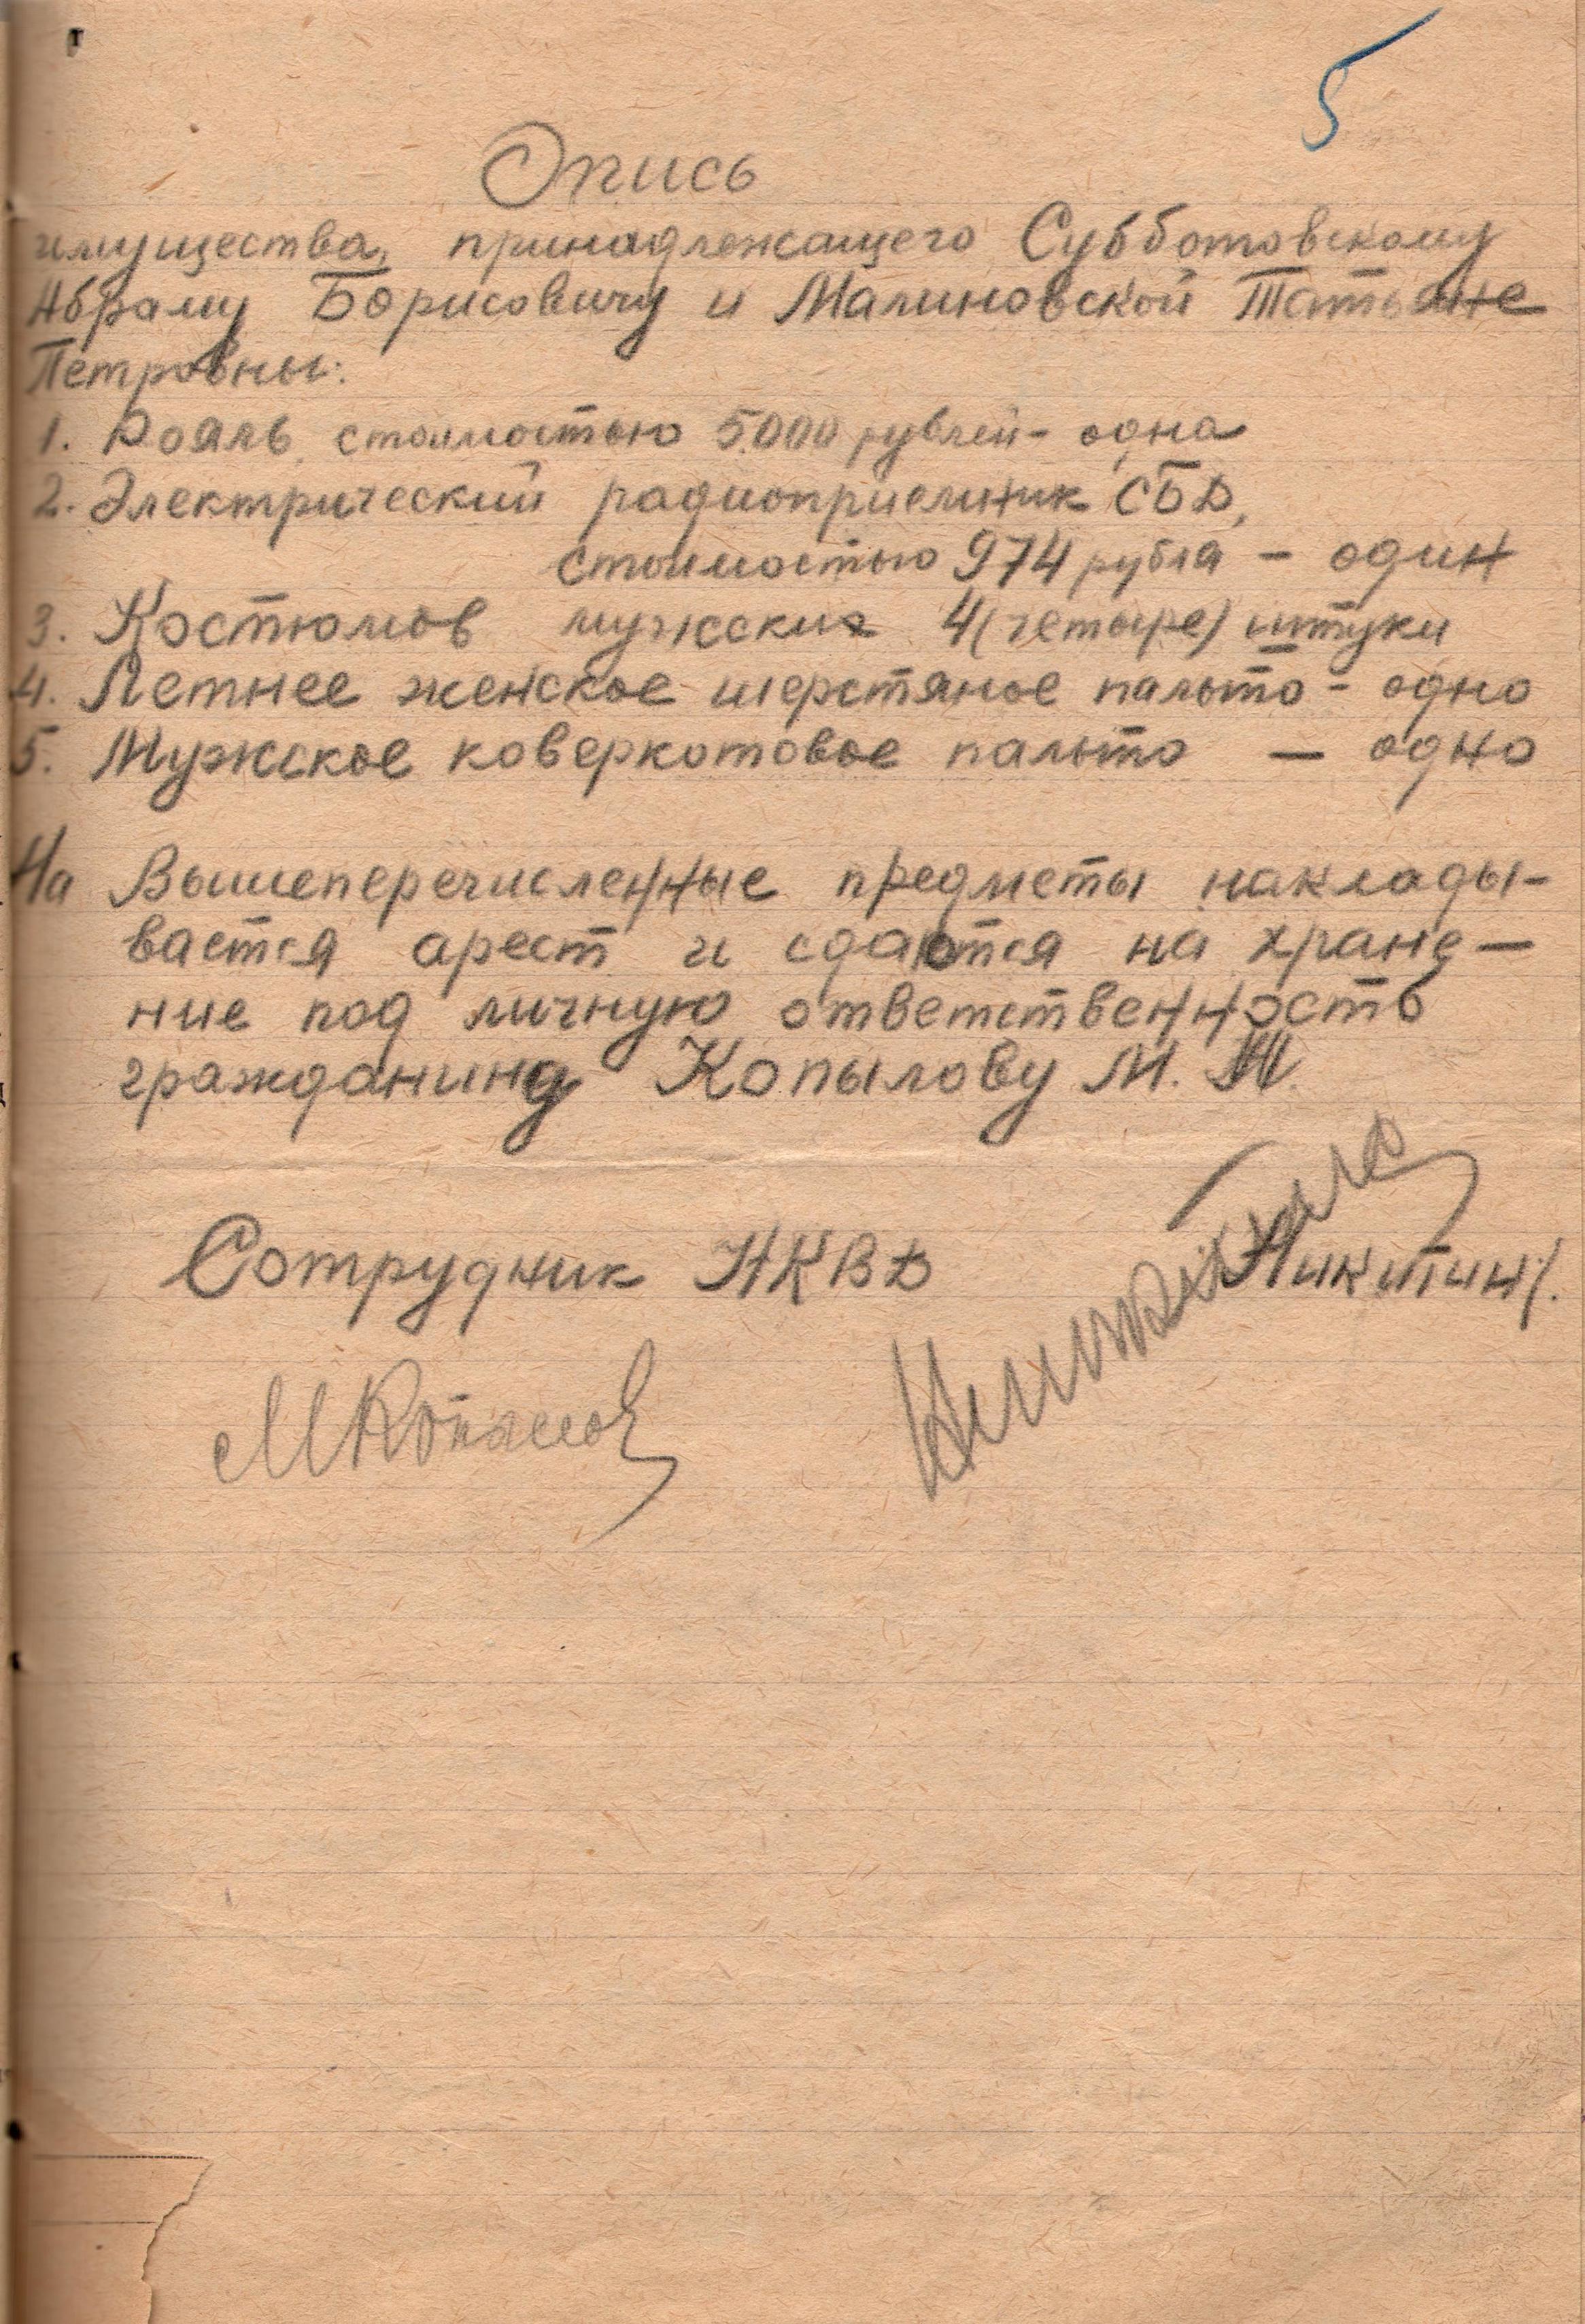 5
Опись
имущества, принадлежащего Субботовскому
Абраму Борисовичу и Малиновской Татьяне
Петровны:
1. Рояль, стоимостью 5000 рублей - одна
2. Электрический радиоприемник СБД,
стоимостью 974 рубля - один
3. Костюмов мужских 4 (четыре) штуки
4. Летнее женское шерстяное пальто - одно
5. Мужское коверкотовое пальто — одно
На Вышеперечисленные предметы наклады-
вается арест и сдаются на хране-
ние под личную ответственность
гражданина Копылову М.
Сотрудник НКВД Никитин/.
МКопылов